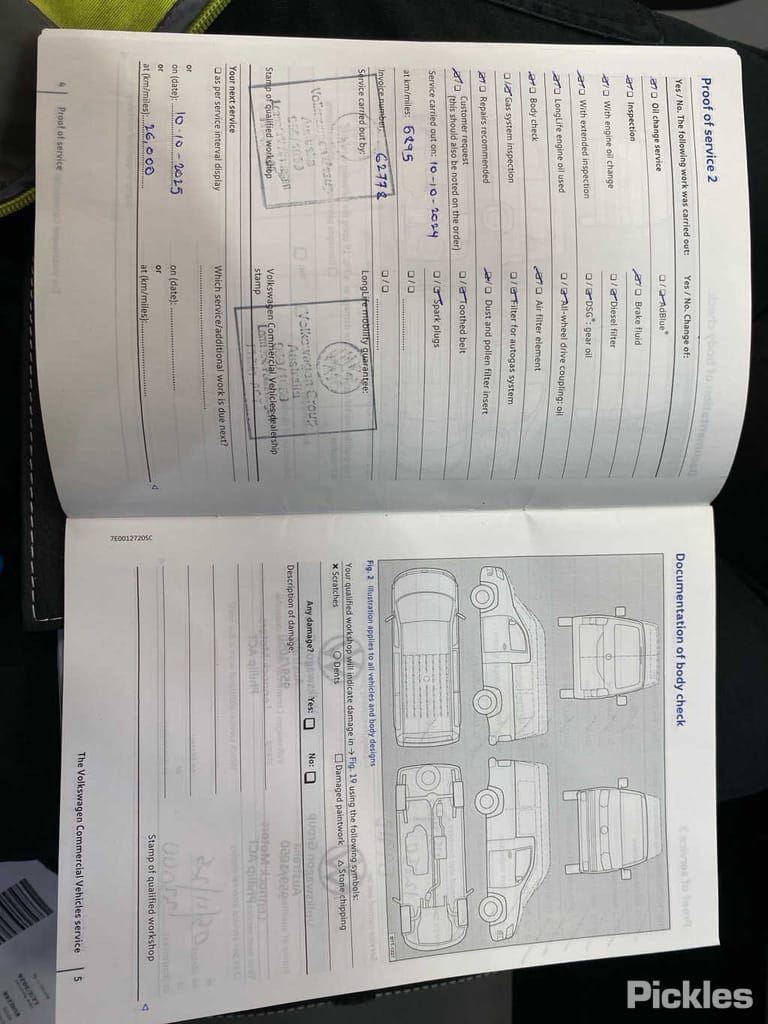 Proof of service 2
Yes / No. The following work was carried out:
☑ / ☐ Oil change service
☑ / ☐ Inspection
☑ / ☐ With engine oil change
☑ / ☐ With extended inspection
☑ / ☐ LongLife engine oil used
☑ / ☐ Body check
☐ / ☑ Gas system inspection
☑ / ☐ Repairs recommended
☑ / ☐ Customer request
(this should also be noted on the order)
Service carried out on: 10-10-2024
at km/miles: 5895
Invoice number: 62778
Service carried out by:
Stamp of qualified workshop
Your next service
☐ as per service interval display
or
on (date): 10-10-2025
or
at (km/miles): 26,000
4 | Proof of service
Yes / No. Change of:
☐ / ☑ AdBlue®
☑ / ☐ Brake fluid
☐ / ☑ Diesel filter
☐ / ☑ DSG®: gear oil
☐ / ☑ All-wheel drive coupling: oil
☑ / ☐ Air filter element
☐ / ☑ Filter for autogas system
☑ / ☐ Dust and pollen filter insert
☐ / ☑ Toothed belt
☐ / ☑ Spark plugs
☐ / ☐
☐ / ☐
LongLife mobility guarantee:
Volkswagen Group
Australia
Volkswagen Commercial Vehicles dealership
stamp
Which service/additional work is due next?
on (date):
or
at (km/miles):
7E0012720SC
Documentation of body check
Fig. 2 Illustration applies to all vehicles and body designs
Your qualified workshop will indicate damage in → Fig. 19 using the following symbols:
✗ Scratches ○ Dents ☐ Damaged paintwork △ Stone chipping
Any damage? Yes: ☐ No: ☐
Description of damage:
Stamp of qualified workshop
The Volkswagen Commercial Vehicles service | 5
Pickles